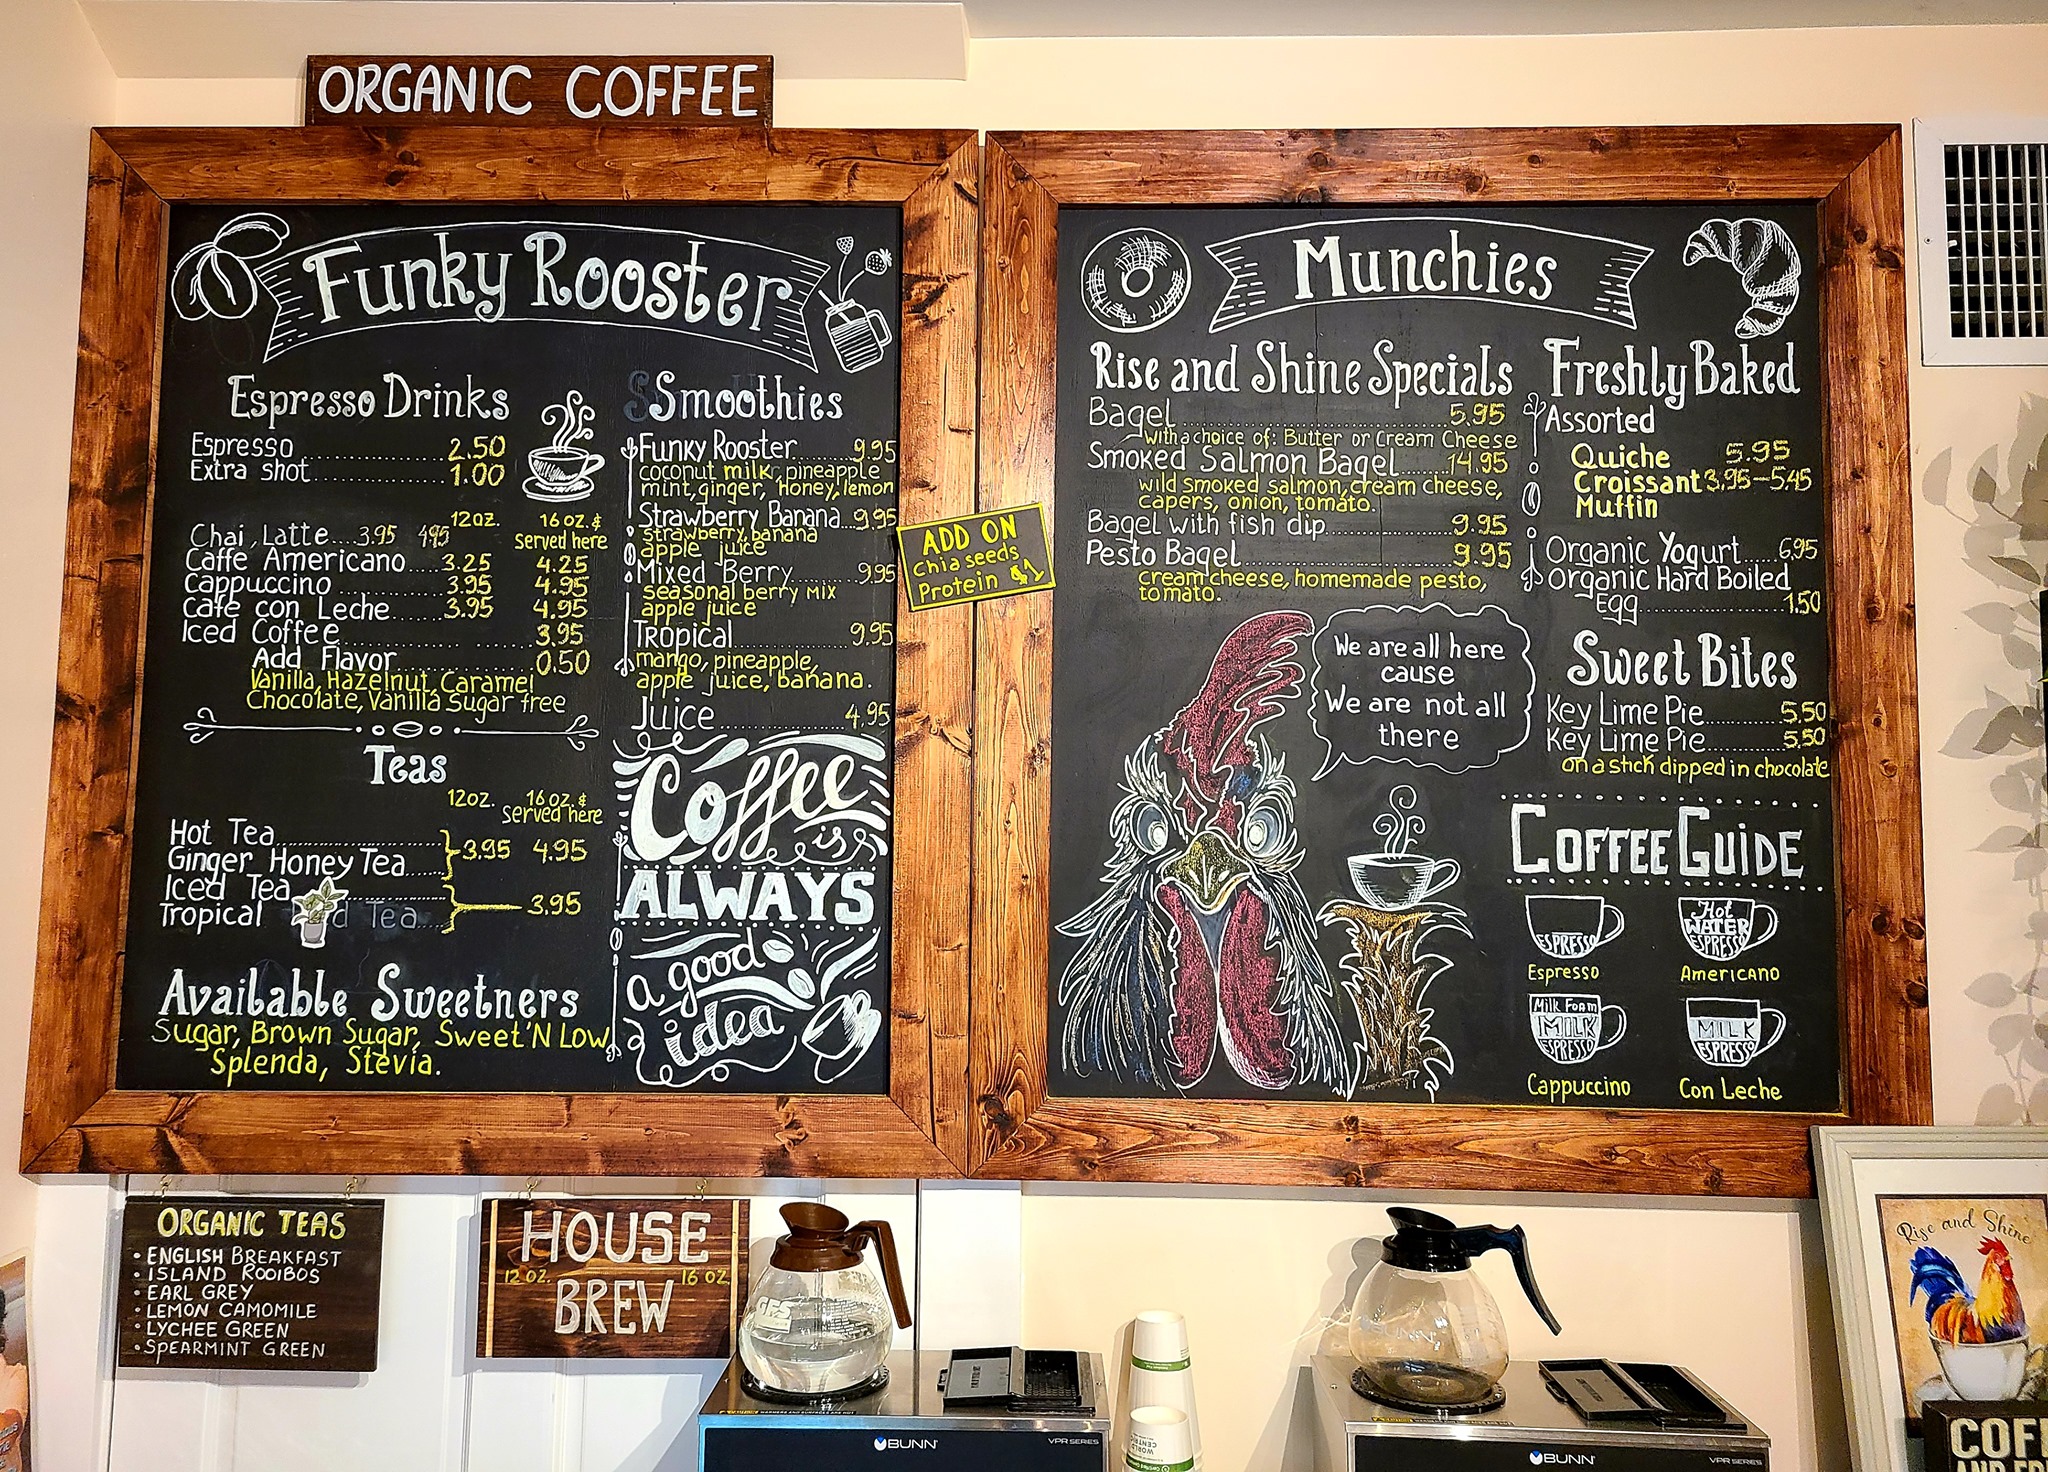 ORGANIC COFFEE
Funky Rooster
Espresso Drinks
Espresso..............2.50
Extra shot..............1.00
12oz. 16 oz. &
served here
Chai Latte....3.95 4.95
Caffe Americano...3.25 4.25
Cappuccino............3.95 4.95
Cafe con Leche......3.95 4.95
Iced Coffee..............3.95
Add Flavor..............0.50
Vanilla, Hazelnut, Caramel
Chocolate, Vanilla Sugar free
Teas
12oz. 16 oz. &
served here
Hot Tea..............
Ginger Honey Tea...... 3.95 4.95
Iced Tea..............
Tropical Tea.... 3.95
Available Sweetners
Sugar, Brown Sugar, Sweet'N Low
Splenda, Stevia.
Smoothies
Funky Rooster.......9.95
coconut milk, pineapple
mint, ginger, honey, lemon
Strawberry Banana...9.95
strawberry, banana
apple juice
Mixed Berry.......9.95
seasonal berry mix
apple juice
Tropical..............9.95
mango, pineapple,
apple juice, banana.
Juice..............4.95
Coffee
is
ALWAYS
a good
idea
ADD ON
Chia seeds
Protein $1
Munchies
Rise and Shine Specials
Bagel..............5.95
with a choice of: Butter or Cream Cheese
Smoked Salmon Bagel.......14.95
wild smoked salmon, cream cheese,
capers, onion, tomato.
Bagel with fish dip..............9.95
Pesto Bagel..............9.95
cream cheese, homemade pesto,
tomato.
We are all here
cause
We are not all
there
Freshly Baked
Assorted
Quiche 5.95
Croissant 3.95-5.45
Muffin
Organic Yogurt.....6.95
Organic Hard Boiled
Egg..............1.50
Sweet Bites
Key Lime Pie...........5.50
Key Lime Pie...........5.50
on a stick dipped in chocolate
COFFEE GUIDE
ESPRESSO
Espresso
Hot
WATER
ESPRESSO
Americano
Milk Foam
MILK
ESPRESSO
Cappuccino
MILK
ESPRESSO
Con Leche
ORGANIC TEAS
• ENGLISH BREAKFAST
• ISLAND ROOIBOS
• EARL GREY
• LEMON CAMOMILE
• LYCHEE GREEN
• SPEARMINT GREEN
HOUSE
12 OZ. 16 OZ
BREW
GFS
BUNN
VPR SERIES
WORLD
CENTRIC
BUNN
BUNN
VPR SERIES
Rise and Shine
COF
AND FR